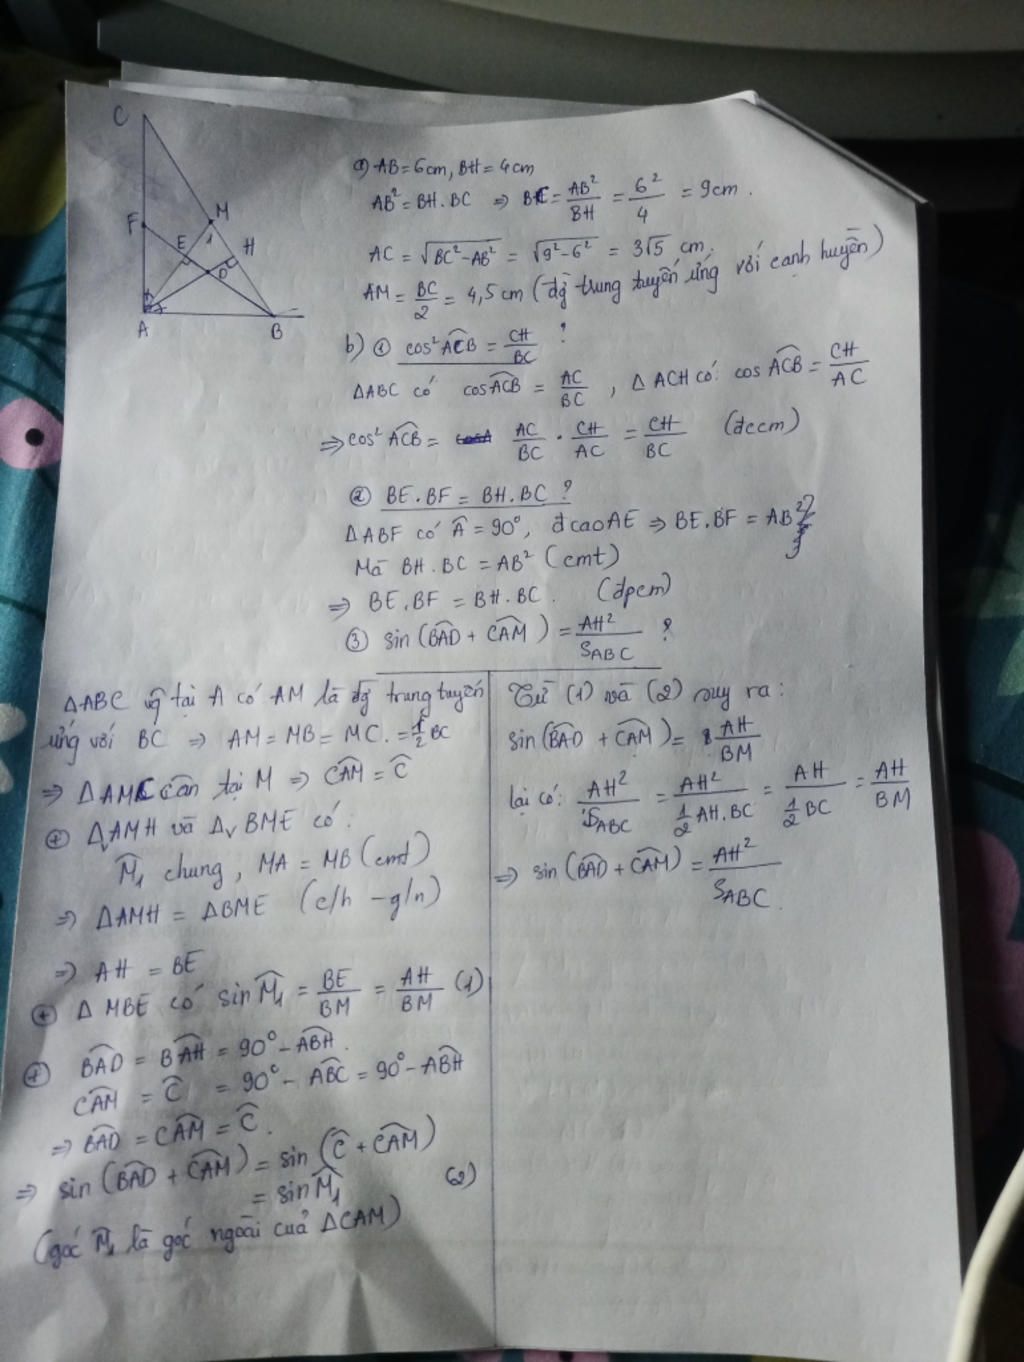 C
F
M
E
1
H
D
A
B
a) AB = 6cm, BH = 4cm
AB² = BH . BC ⇒ BC = AB²/BH = 6²/4 = 9cm .
AC = √(BC² - AB²) = √(9² - 6²) = 3√5 cm.
AM = BC/2 = 4,5 cm (đg trung tuyến ứng với cạnh huyền)
b) ① cos² ACB = CH/BC ?
ΔABC có cos ACB = AC/BC , Δ ACH có: cos ACB = CH/AC
⇒ cos² ACB = AC/BC . CH/AC = CH/BC (đccm)
② BE . BF = BH . BC ?
ΔABF có Â = 90°, đcao AE ⇒ BE . BF = AB²
Mà BH . BC = AB² (cmt)
⇒ BE . BF = BH . BC . (đpcm)
③ sin (BAD + CAM) = AH²/S_ABC ?
ΔABC vg tại A có AM là đg trung tuyến
ứng với BC ⇒ AM = MB = MC . = 1/2 BC
⇒ ΔAMC cân tại M ⇒ CAM = Ĉ
⊕ ΔvAMH và Δv BME có :
M̂₁ chung , MA = MB (cmt)
⇒ ΔAMH = ΔBME (c/h - g/n)
⇒ AH = BE
⊕ Δ MBE có sin M̂₁ = BE/BM = AH/BM (1)
⊕ BAD = BAH = 90° - ABH .
CAM = Ĉ = 90° - ABC = 90° - ABH
⇒ BAD = CAM = Ĉ .
⇒ sin (BAD + CAM) = sin (Ĉ + CAM)
= sin M̂₁ (2)
(góc M̂₁ là góc ngoài của ΔCAM)
Từ (1) và (2) suy ra :
sin (BAD + CAM) = AH/BM
lại có: AH²/S_ABC = AH²/(1/2 AH . BC) = AH/(1/2 BC) = AH/BM
⇒ sin (BAD + CAM) = AH²/S_ABC .